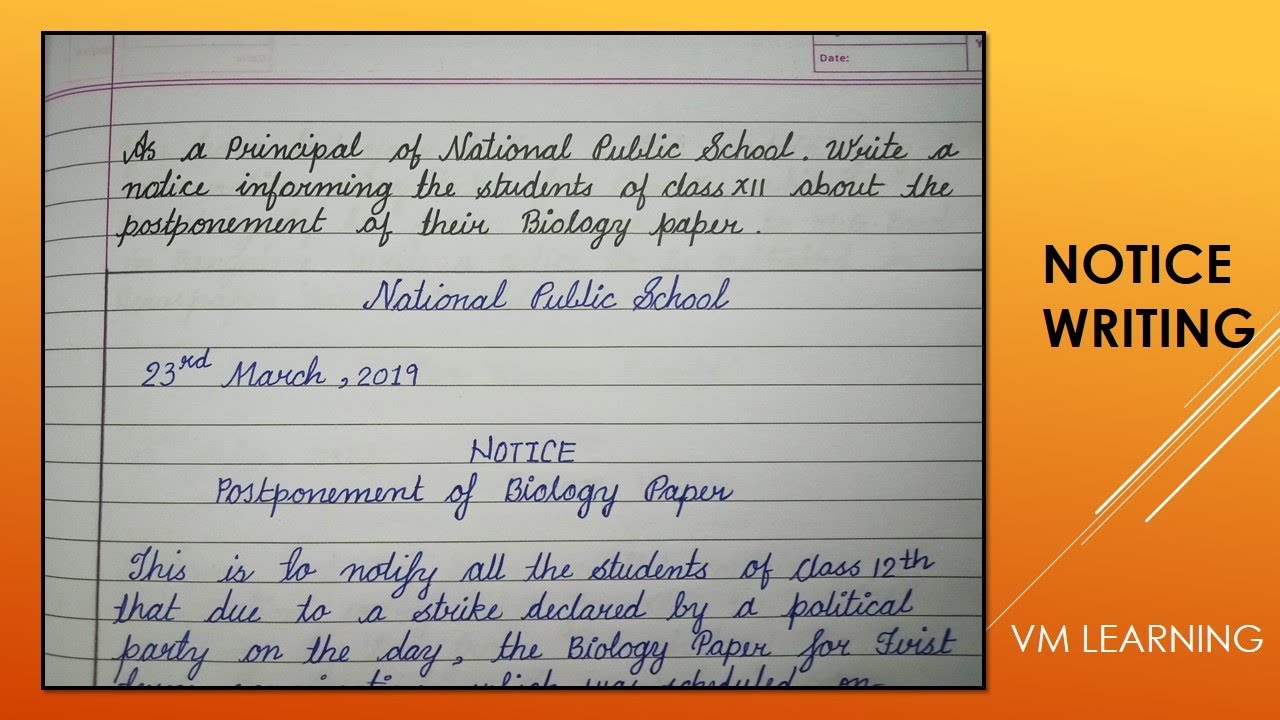 Date:
As a Principal of National Public School. Write a
notice informing the students of class XII about the
postponement of their Biology paper.
National Public School
23rd March, 2019
NOTICE
Postponement of Biology Paper
This is to notify all the students of class 12th
that due to a strike declared by a political
party on the day, the Biology Paper for First
which was scheduled on
NOTICE
WRITING
VM LEARNING